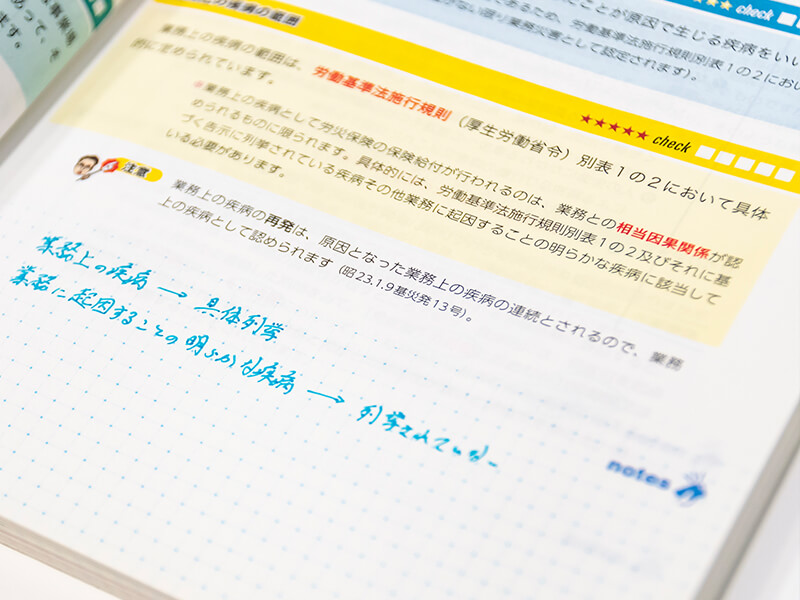 めます。
たことが原因で生じる疾病をいい
あるため、労働基準法施行規則別表1の2におい
ない限り業務災害として認定されます)。
★★★ check
の疾病の範囲
★★★★★ check
業務上の疾病の範囲は、労働基準法施行規則(厚生労働省令)別表1の2において具体
的に定められています。
※業務上の疾病として労災保険の保険給付が行われるのは、業務との相当因果関係が認
められるものに限られます。具体的には、労働基準法施行規則別表1の2及びそれに基
づく告示に列挙されている疾病その他業務に起因することの明らかな疾病に該当して
いる必要があります。
注意
業務上の疾病の再発は、原因となった業務上の疾病の連続とされるので、業務
上の疾病として認められます(昭23.1.9基災発13号)。
業務上の疾病 → 具体列挙
業務に起因することの明らかな疾病 → 列挙されていない
notes